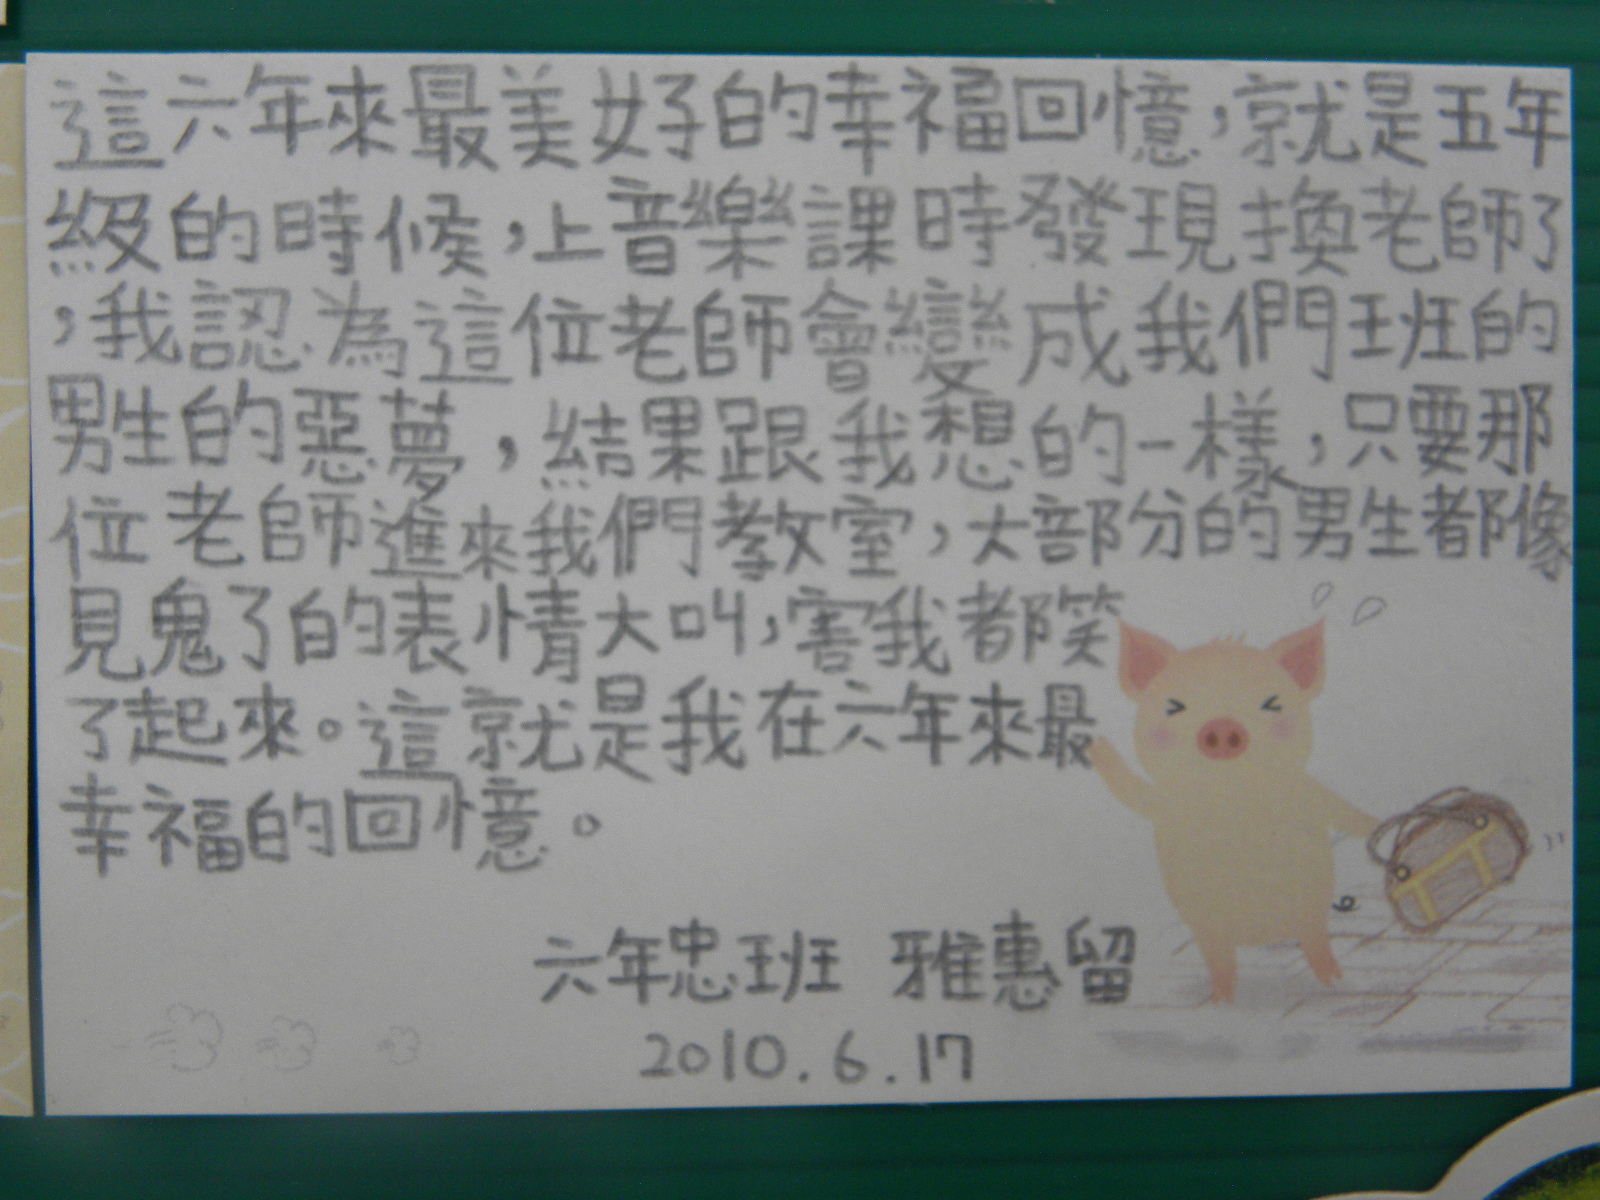 這六年來最美好的幸福回憶，就是五年
級的時候，上音樂課時發現換老師了
，我認為這位老師會變成我們班的
男生的惡夢，結果跟我想的一樣，只要那
位老師進來我們教室，大部分的男生都像
見鬼了的表情大叫，害我都笑
了起來。這就是我在六年來最
幸福的回憶。
六年忠班 雅惠留
2010.6.17